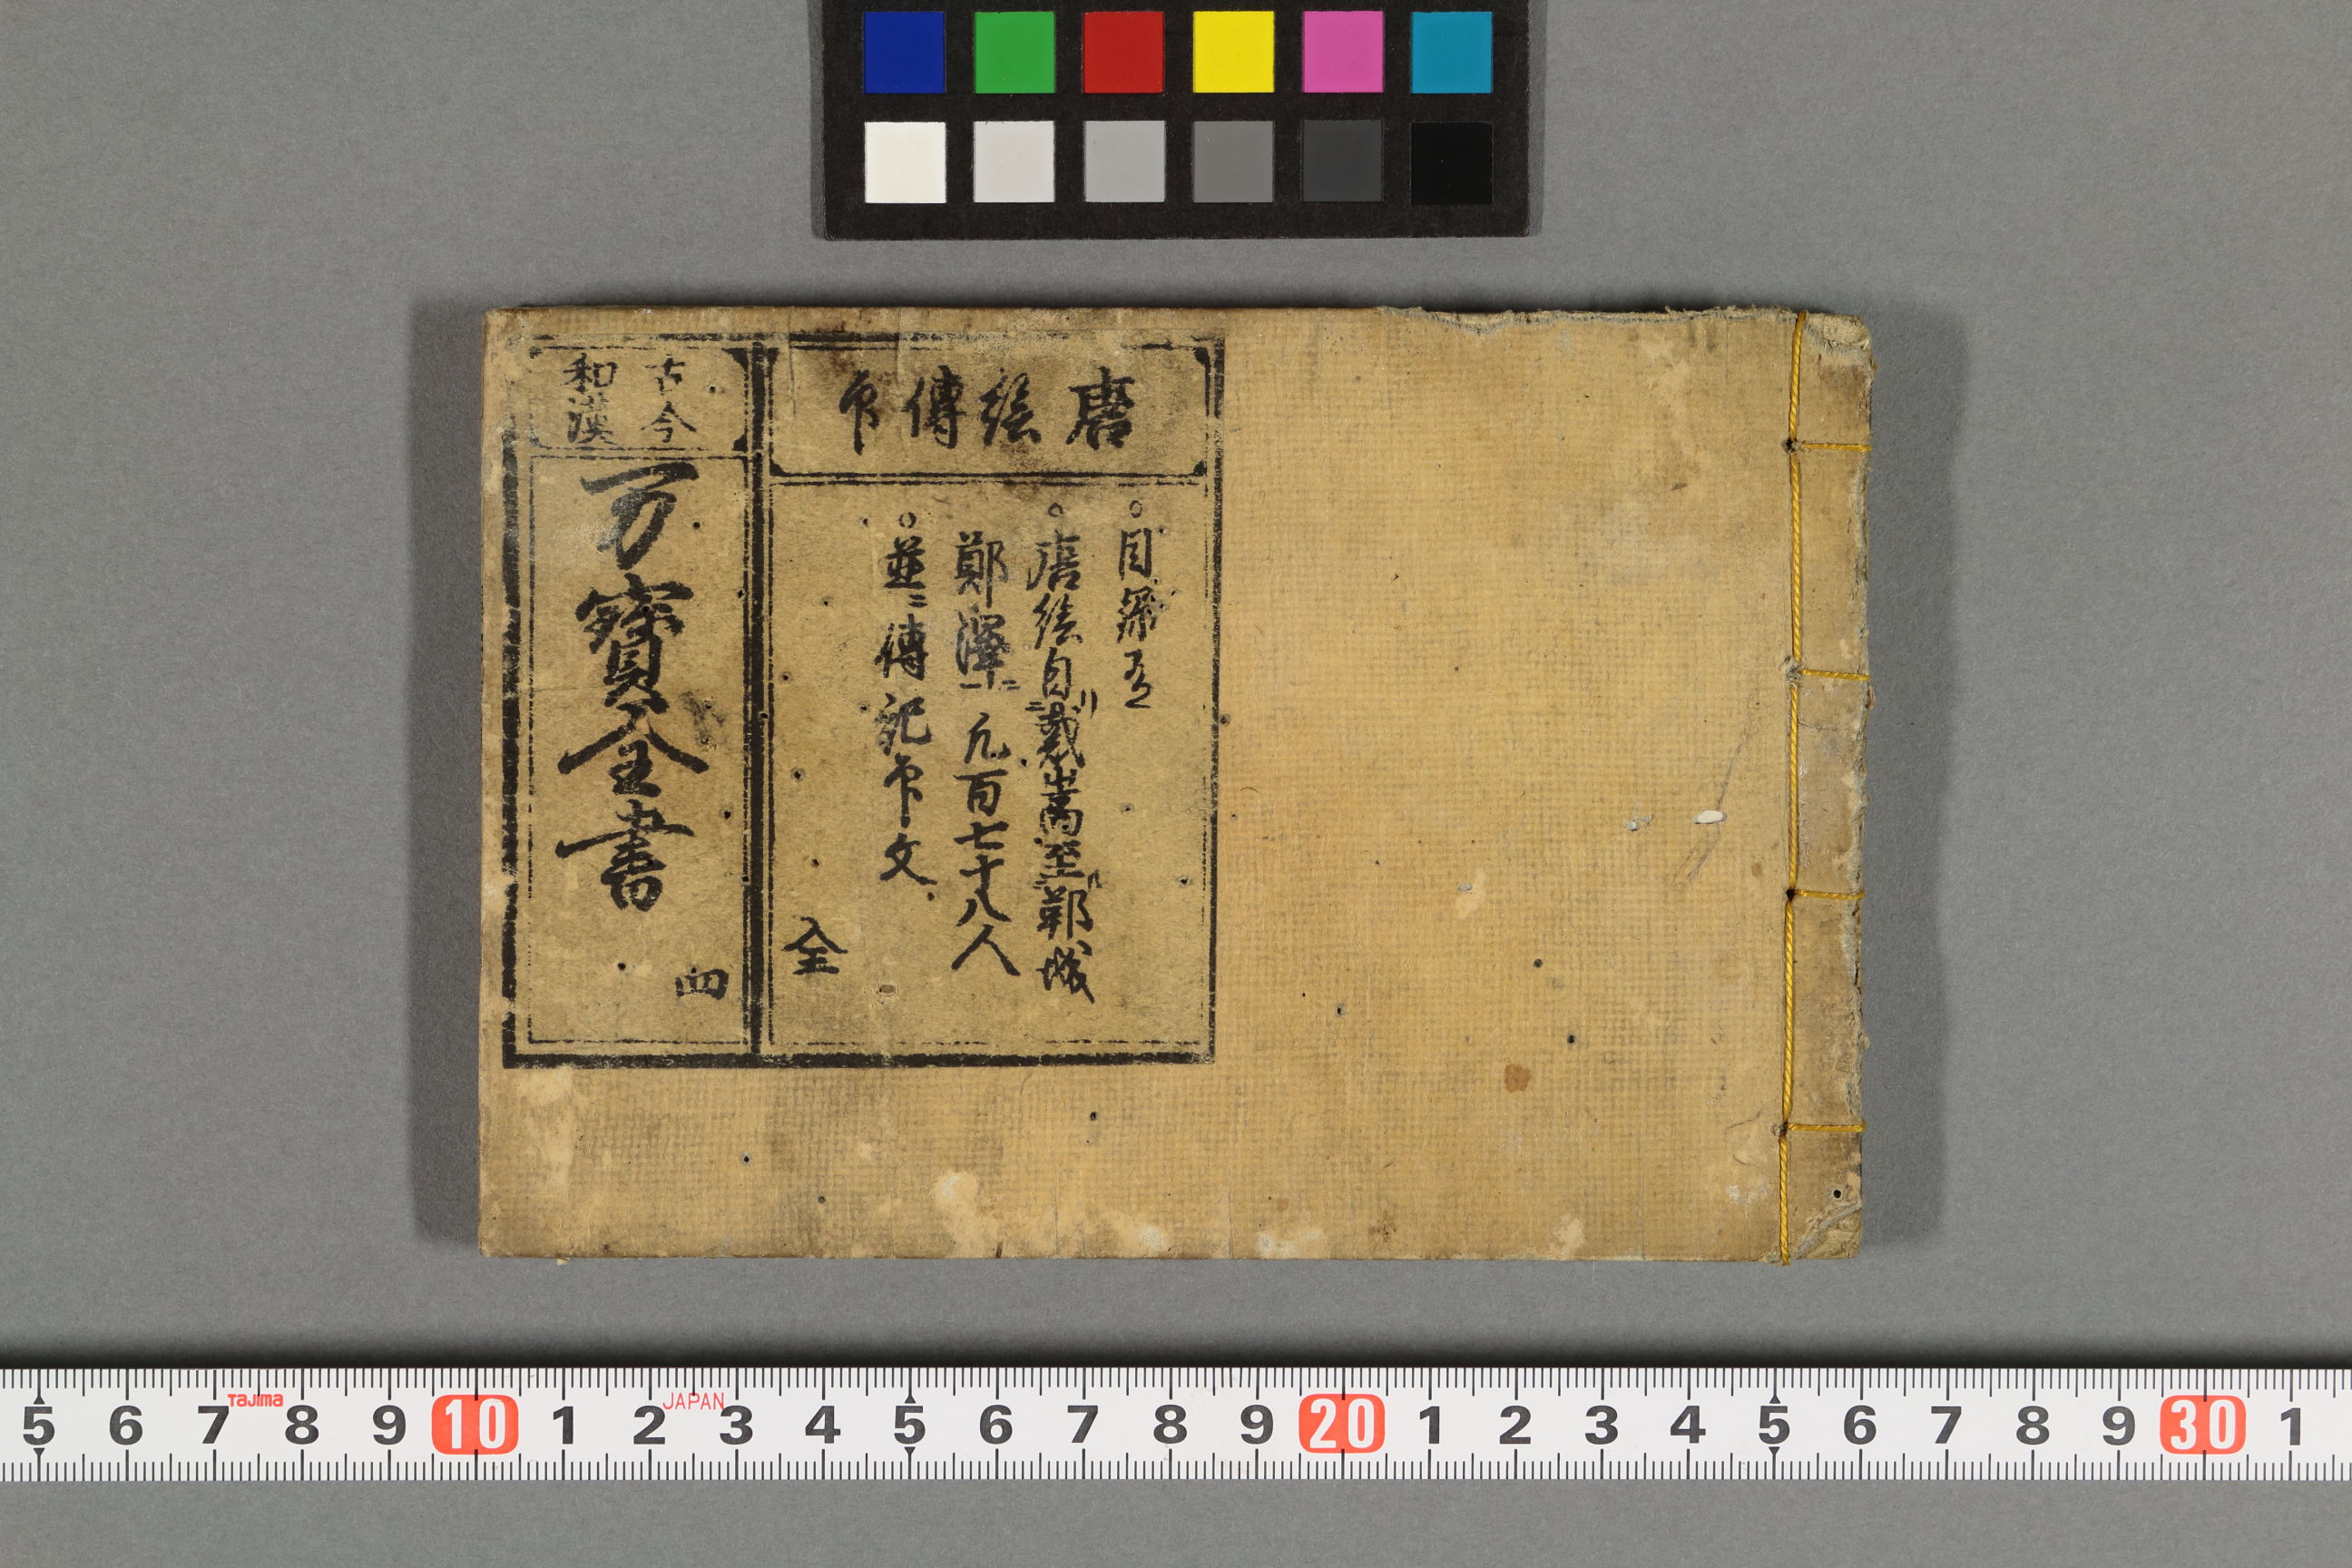 唐絵傳印
○目録有
○唐絵自戴嵩至鄆城
鄭澤ニ凢百七十八人
○並ニ傳記印文
全
古今
和漢
万寳全書
四
5 6 7 8 9 10 1 2 3 4 5 6 7 8 9 20 1 2 3 4 5 6 7 8 9 30 1
Tajima
JAPAN